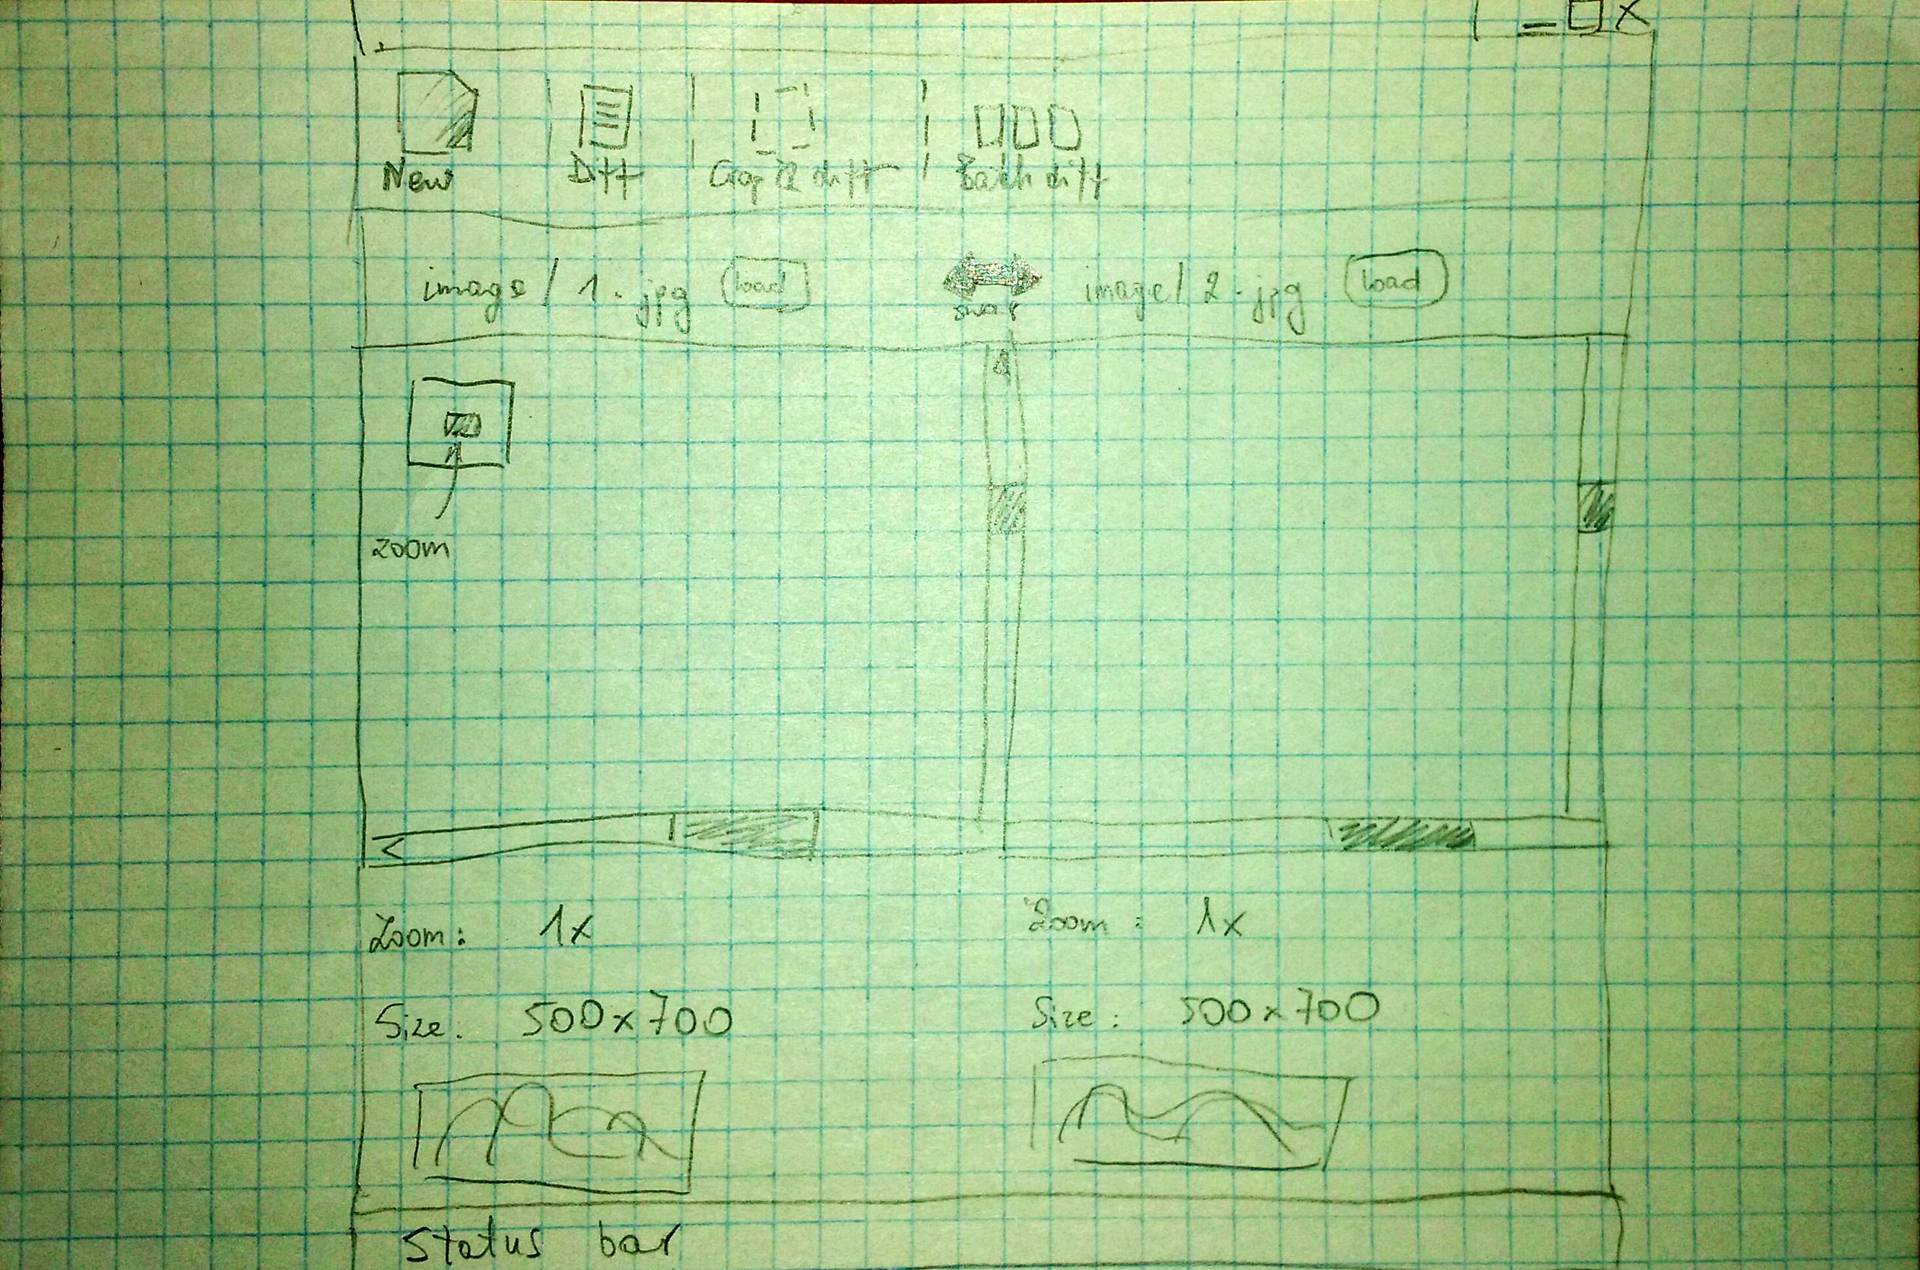 New Diff Crop & diff Batch diff
image/ 1.jpg load swap image/ 2.jpg load
zoom
Zoom: 1x Zoom: 1x
Size. 500x700 Size: 500x700
Status bar